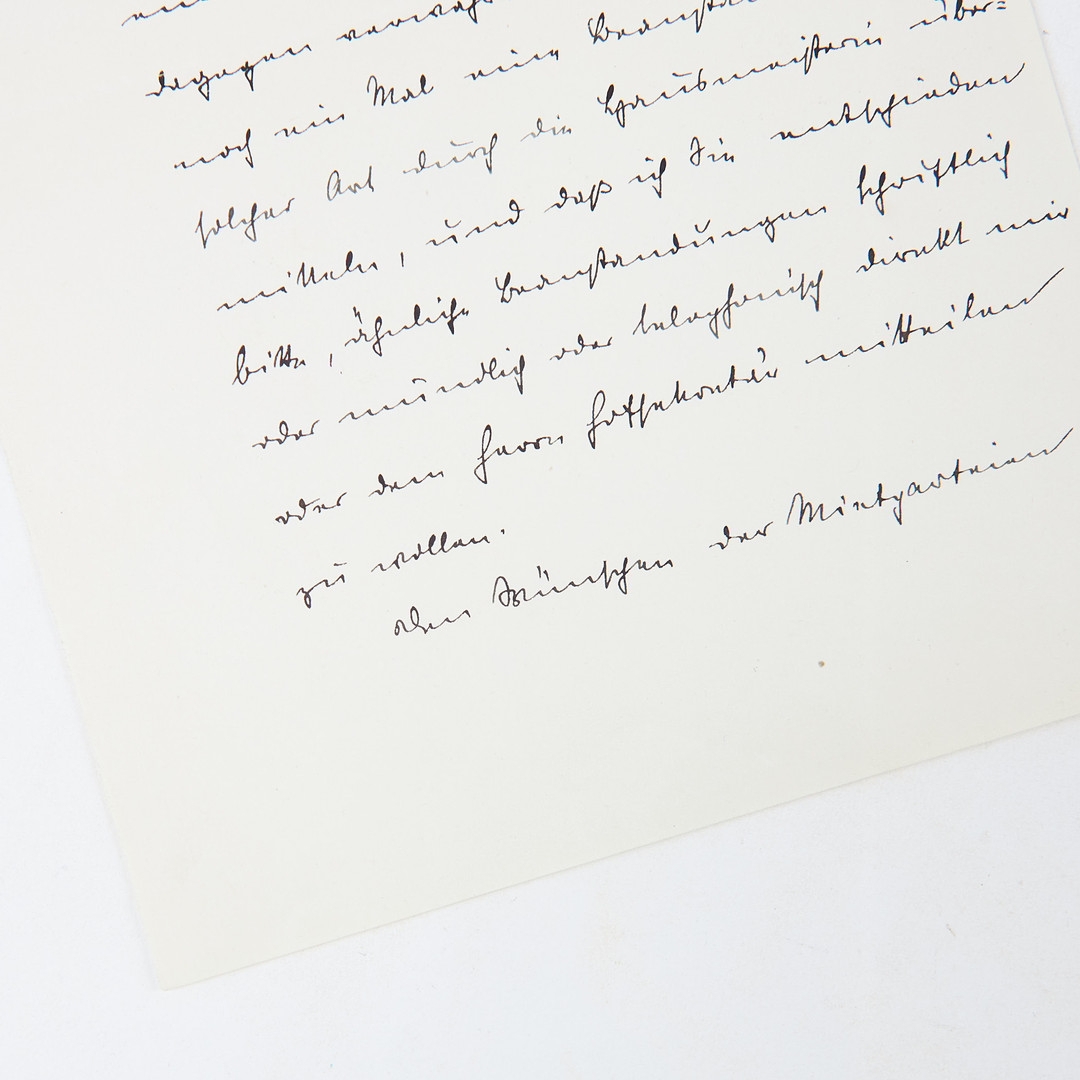 dagegen verwah
noch ein Mal eine Beanstan
solcher Art durch die Hausmeisterin über=
mitteln, und daß ich Sie entschieden
bitte, ähnliche Beanstandungen schriftlich
oder mündlich oder telephonisch direkt mir
oder dem Herrn Hofsekretär mitteilen
zu wollen.
Den Wünschen der Mietparteien